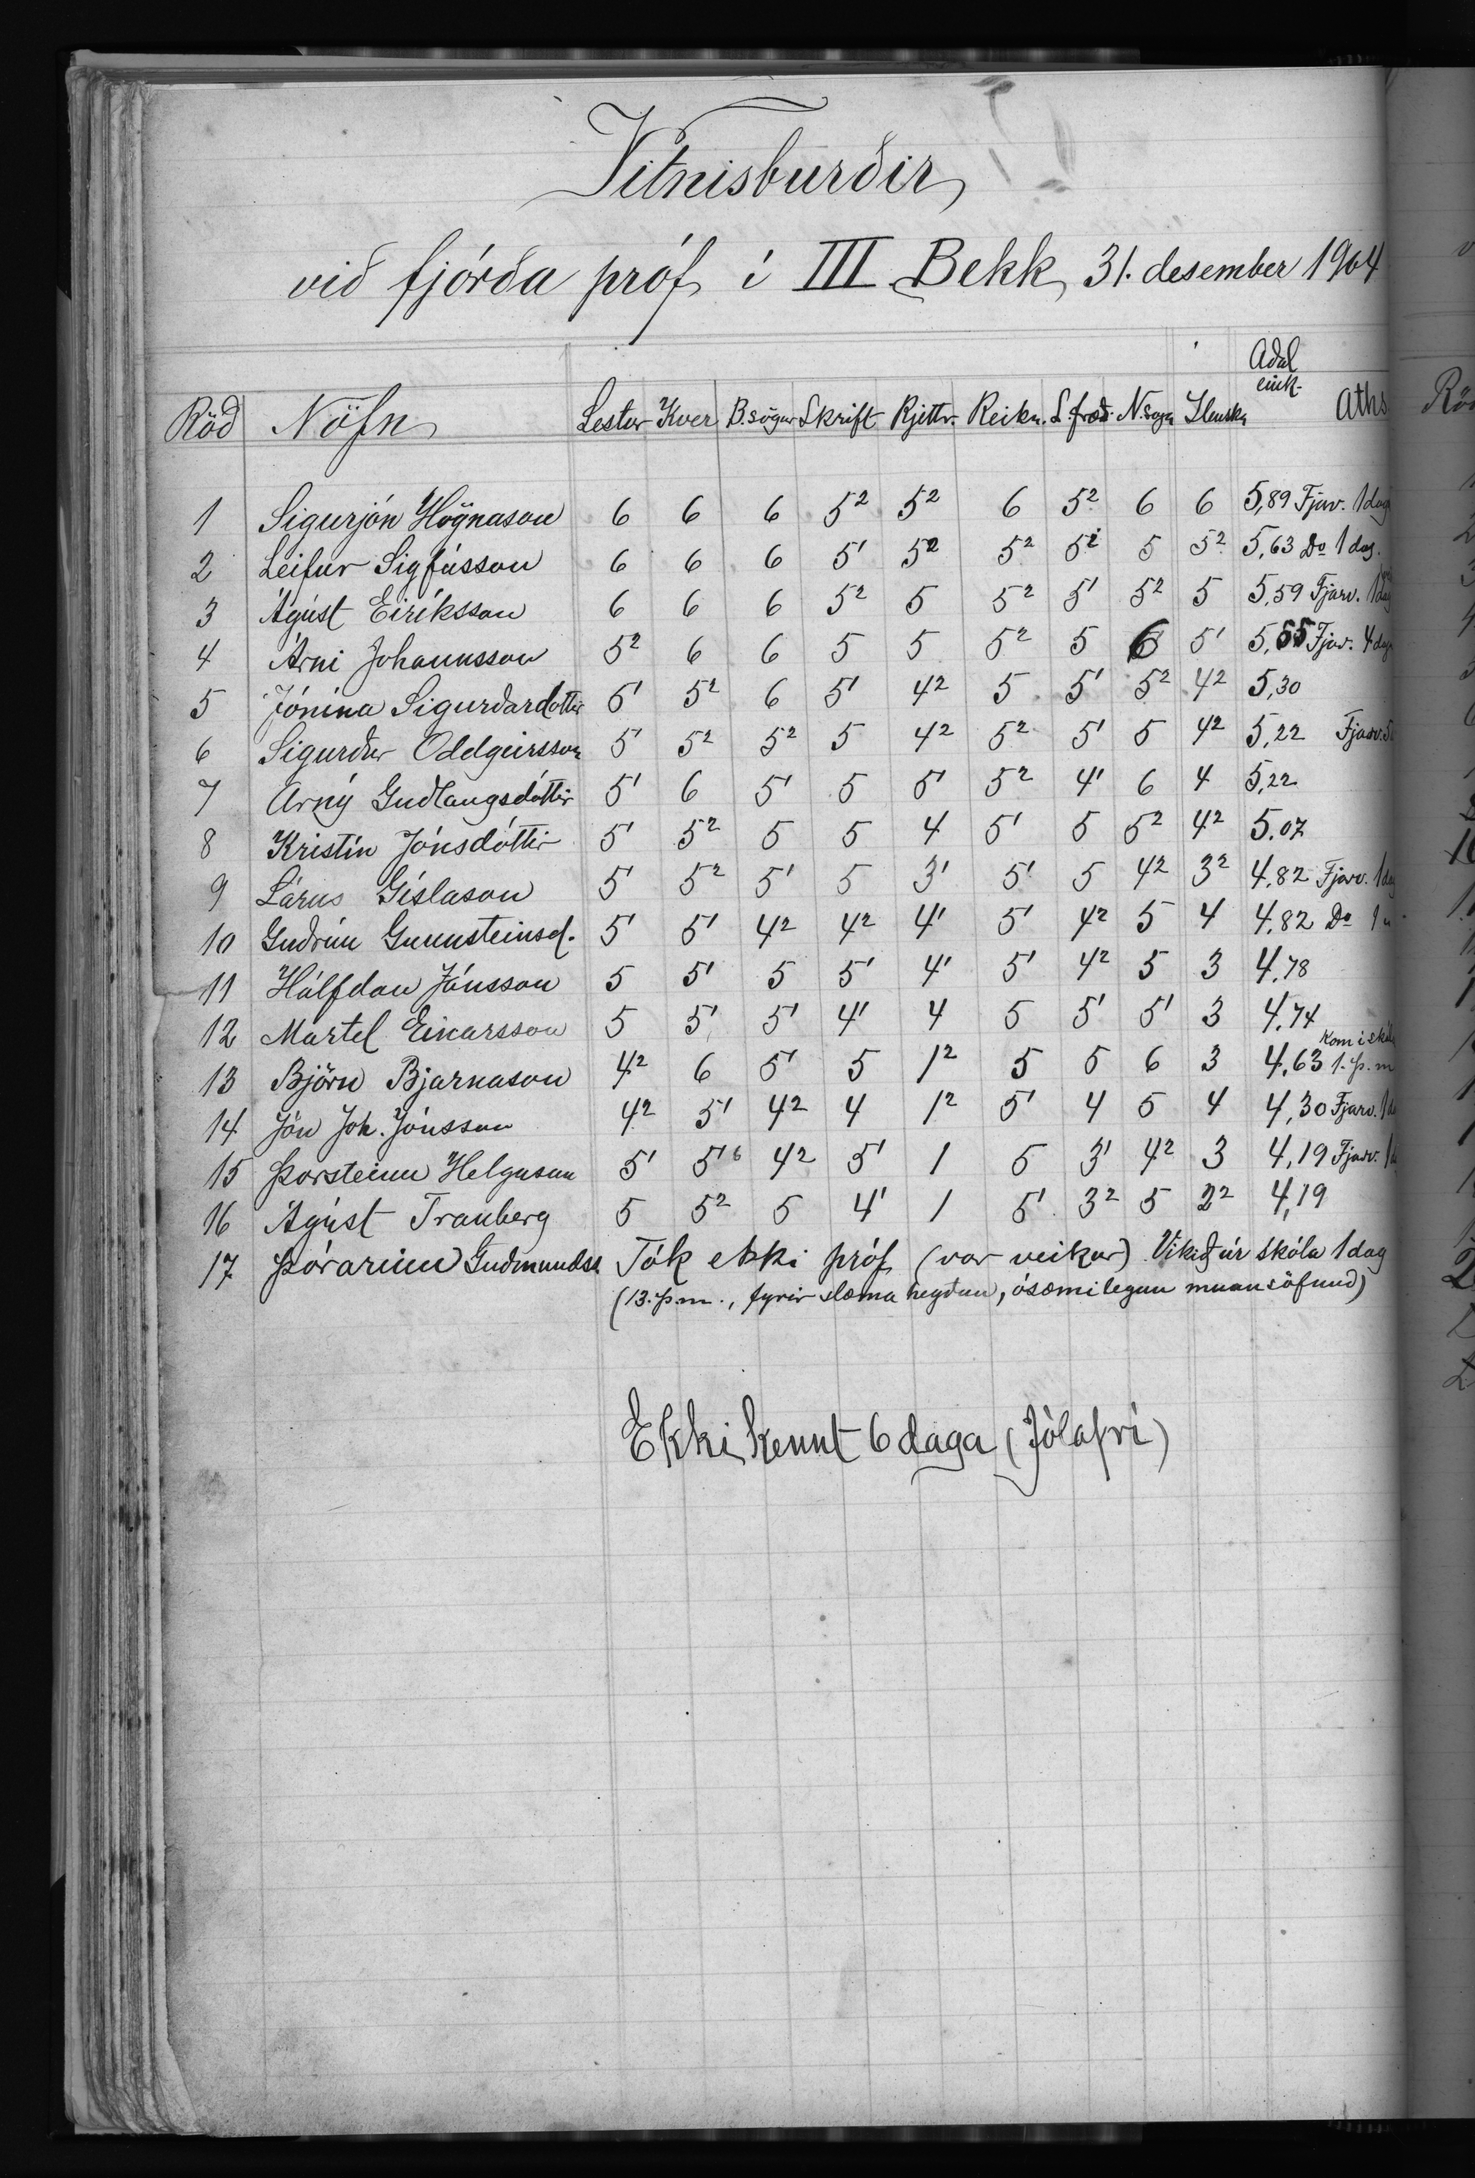 Vitnisburðir
við fjórða próf í III Bekk 31. desember 1904
Röð Nöfn Lestur Kver B.sögur Skrift Rjettr. Reikn. L.fræð. N.saga Íslenska Aðal eink. Aths
1 Sigurjón Högnason 6 6 6 5² 5² 6 5² 6 6 5,89 Fjarv. 1 dag
2 Leifur Sigfússon 6 6 6 5¹ 5² 5² 5² 5 5² 5,63 Do 1 dag.
3 Ágúst Eiríksson 6 6 6 5² 5 5² 5¹ 5² 5 5,59 Fjarv. 1 dag
4 Árni Johannsson 5² 6 6 5 5 5² 5 6 5¹ 5,55 Fjav. 4 dag
5 Jónína Sigurðardottir 5¹ 5² 6 5¹ 4² 5 5¹ 5² 4² 5,30
6 Sigurður Oddgeirsson 5¹ 5² 5² 5 4² 5² 5¹ 5 4² 5,22 Fjarv.
7 Árný Guðlaugsdóttir 5¹ 6 5¹ 5 5¹ 5² 4¹ 6 4 5,22
8 Kristín Jónsdóttir 5¹ 5² 5 5 4 5¹ 5 5² 4² 5.07
9 Lárus Gíslason 5¹ 5² 5¹ 5 3¹ 5¹ 5 4² 3² 4,82 Fjarv. 1 dag
10 Guðrún Gunnsteinsd. 5¹ 5¹ 4² 4² 4¹ 5¹ 4² 5 4 4,82 Do 1
11 Hálfdan Jónsson 5 5¹ 5 5¹ 4¹ 5¹ 4² 5 3 4,78
12 Martel Einarsson 5 5¹ 5¹ 4¹ 4 5 5¹ 5¹ 3 4,74
13 Björn Bjarnason 4² 6 5¹ 5 1² 5 5 6 3 4,63 Kom í skóla 1. þ. m
14 Jón Joh. Jónsson 4² 5¹ 4² 4 1² 5¹ 4 5 4 4,30 Fjarv. 1
15 Þorsteinn Helgason 5¹ 5¹ 4² 5¹ 1 5 3¹ 4² 3 4,19 Fjarv. 1
16 Ágúst Trauberg 5 5² 5 4¹ 1 5¹ 3² 5 2² 4,19
17 Þórarinn Guðmundss. Tók ekki próf (var veikur). Vikið úr skóla 1 dag
(13. þ.m., fyrir slæma hegðun, ósæmilegan munnsöfnuð)
Ekki kennt 6 daga (Jólafrí)